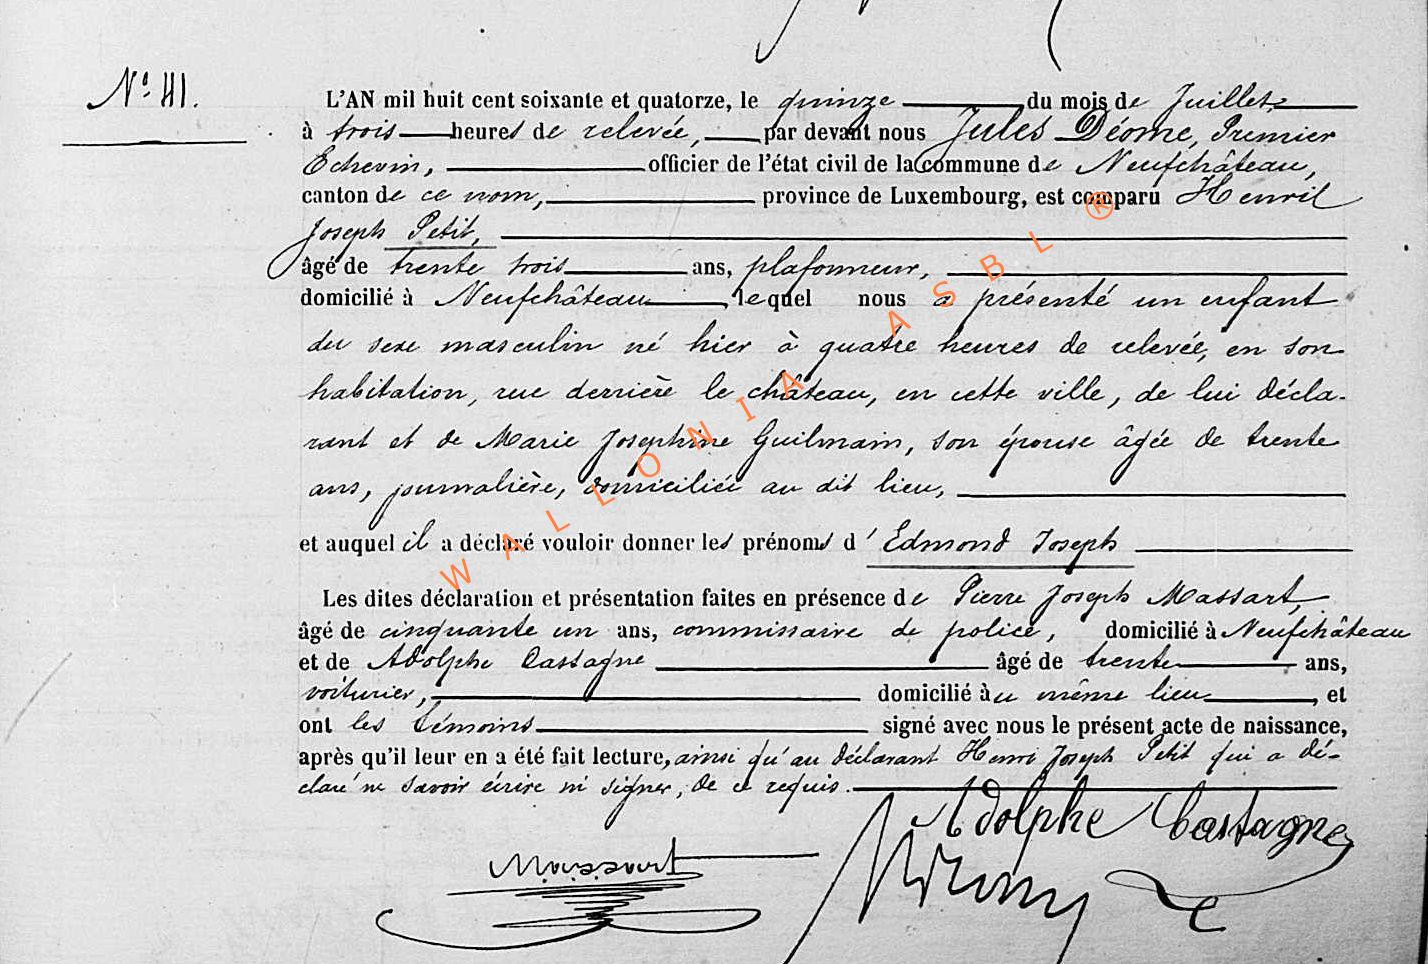 N° 41.
L'AN mil huit cent soixante et quatorze, le quinze du mois de Juillet,
à trois heures de relevée, par devant nous Jules Déome, Premier
Echevin, officier de l'état civil de la commune de Neufchâteau,
canton de ce nom, province de Luxembourg, est comparu Henri
Joseph Petit,
âgé de trente trois ans, plafonneur,
domicilié à Neufchâteau, lequel nous a présenté un enfant
du sexe masculin né hier à quatre heures de relevée, en son
habitation, rue derrière le château, en cette ville, de lui décla-
rant et de Marie Josephine Guilmain, son épouse âgée de trente
ans, journalière, domiciliée au dit lieu,
et auquel il a déclaré vouloir donner les prénoms d'Edmond Joseph
Les dites déclaration et présentation faites en présence de Pierre Joseph Massart,
âgé de cinquante un ans, commissaire de police, domicilié à Neufchâteau
et de Adolphe Castagne âgé de trente ans,
voiturier, domicilié au même lieu, et
ont les témoins signé avec nous le présent acte de naissance,
après qu'il leur en a été fait lecture, ainsi qu'au déclarant Henri Joseph Petit qui a dé-
claré ne savoir écrire ni signer, de ce requis.
Adolphe Castagne
Massart
WALLONIA ASBL ®